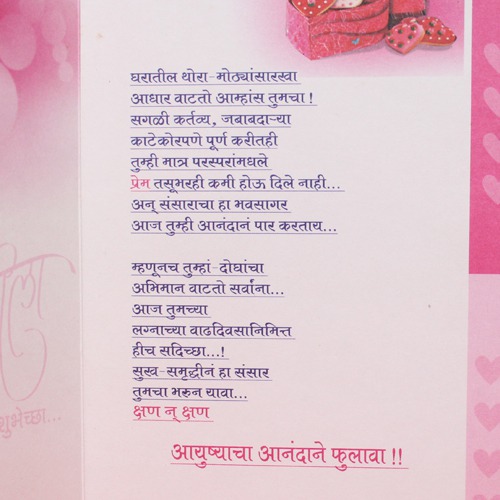 घरातील थोरा-मोठ्यांसारखा
आधार वाटतो आम्हांस तुमचा !
सगळी कर्तव्य, जबाबदाऱ्या
काटेकोरपणे पूर्ण करीतही
तुम्ही मात्र परस्परांमधले
प्रेम तसूभरही कमी होऊ दिले नाही...
अन् संसाराचा हा भवसागर
आज तुम्ही आनंदानं पार करताय...
म्हणूनच तुम्हां-दोघांचा
अभिमान वाटतो सर्वांना...
आज तुमच्या
लग्नाच्या वाढदिवसानिमित्त
हीच सदिच्छा...!
सुख-समृद्धीनं हा संसार
तुमचा भरून यावा...
क्षण न् क्षण
आयुष्याचा आनंदाने फुलावा !!
शुभेच्छा...